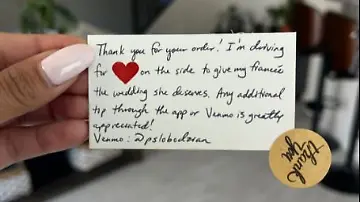 Thank you for your order! I'm driving
for ❤ on the side to give my fiancée
the wedding she deserves. Any additional
tip through the app or Venmo is greatly
appreciated!
Venmo: @pslobodovan
thank
you